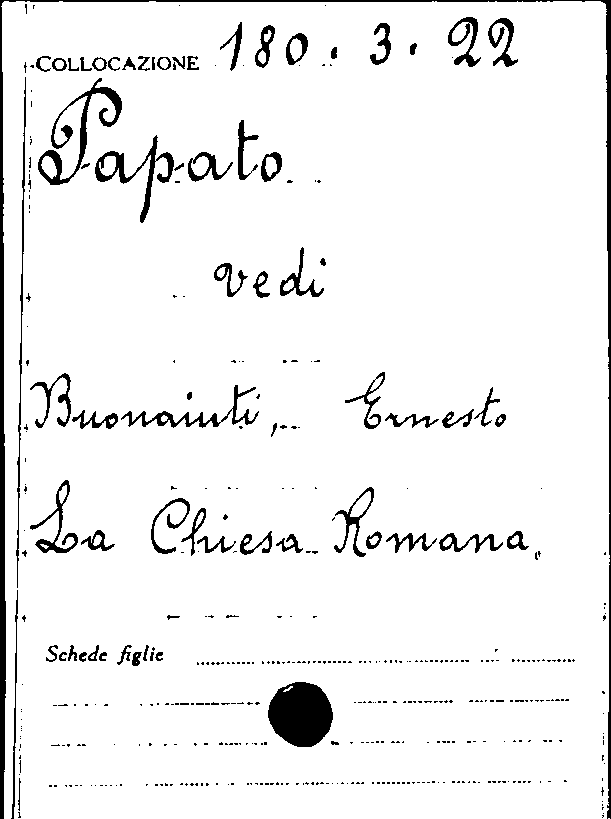 COLLOCAZIONE 180.3.22
Papato
vedi
Buonaiuti, Ernesto
La Chiesa Romana.
Schede figlie